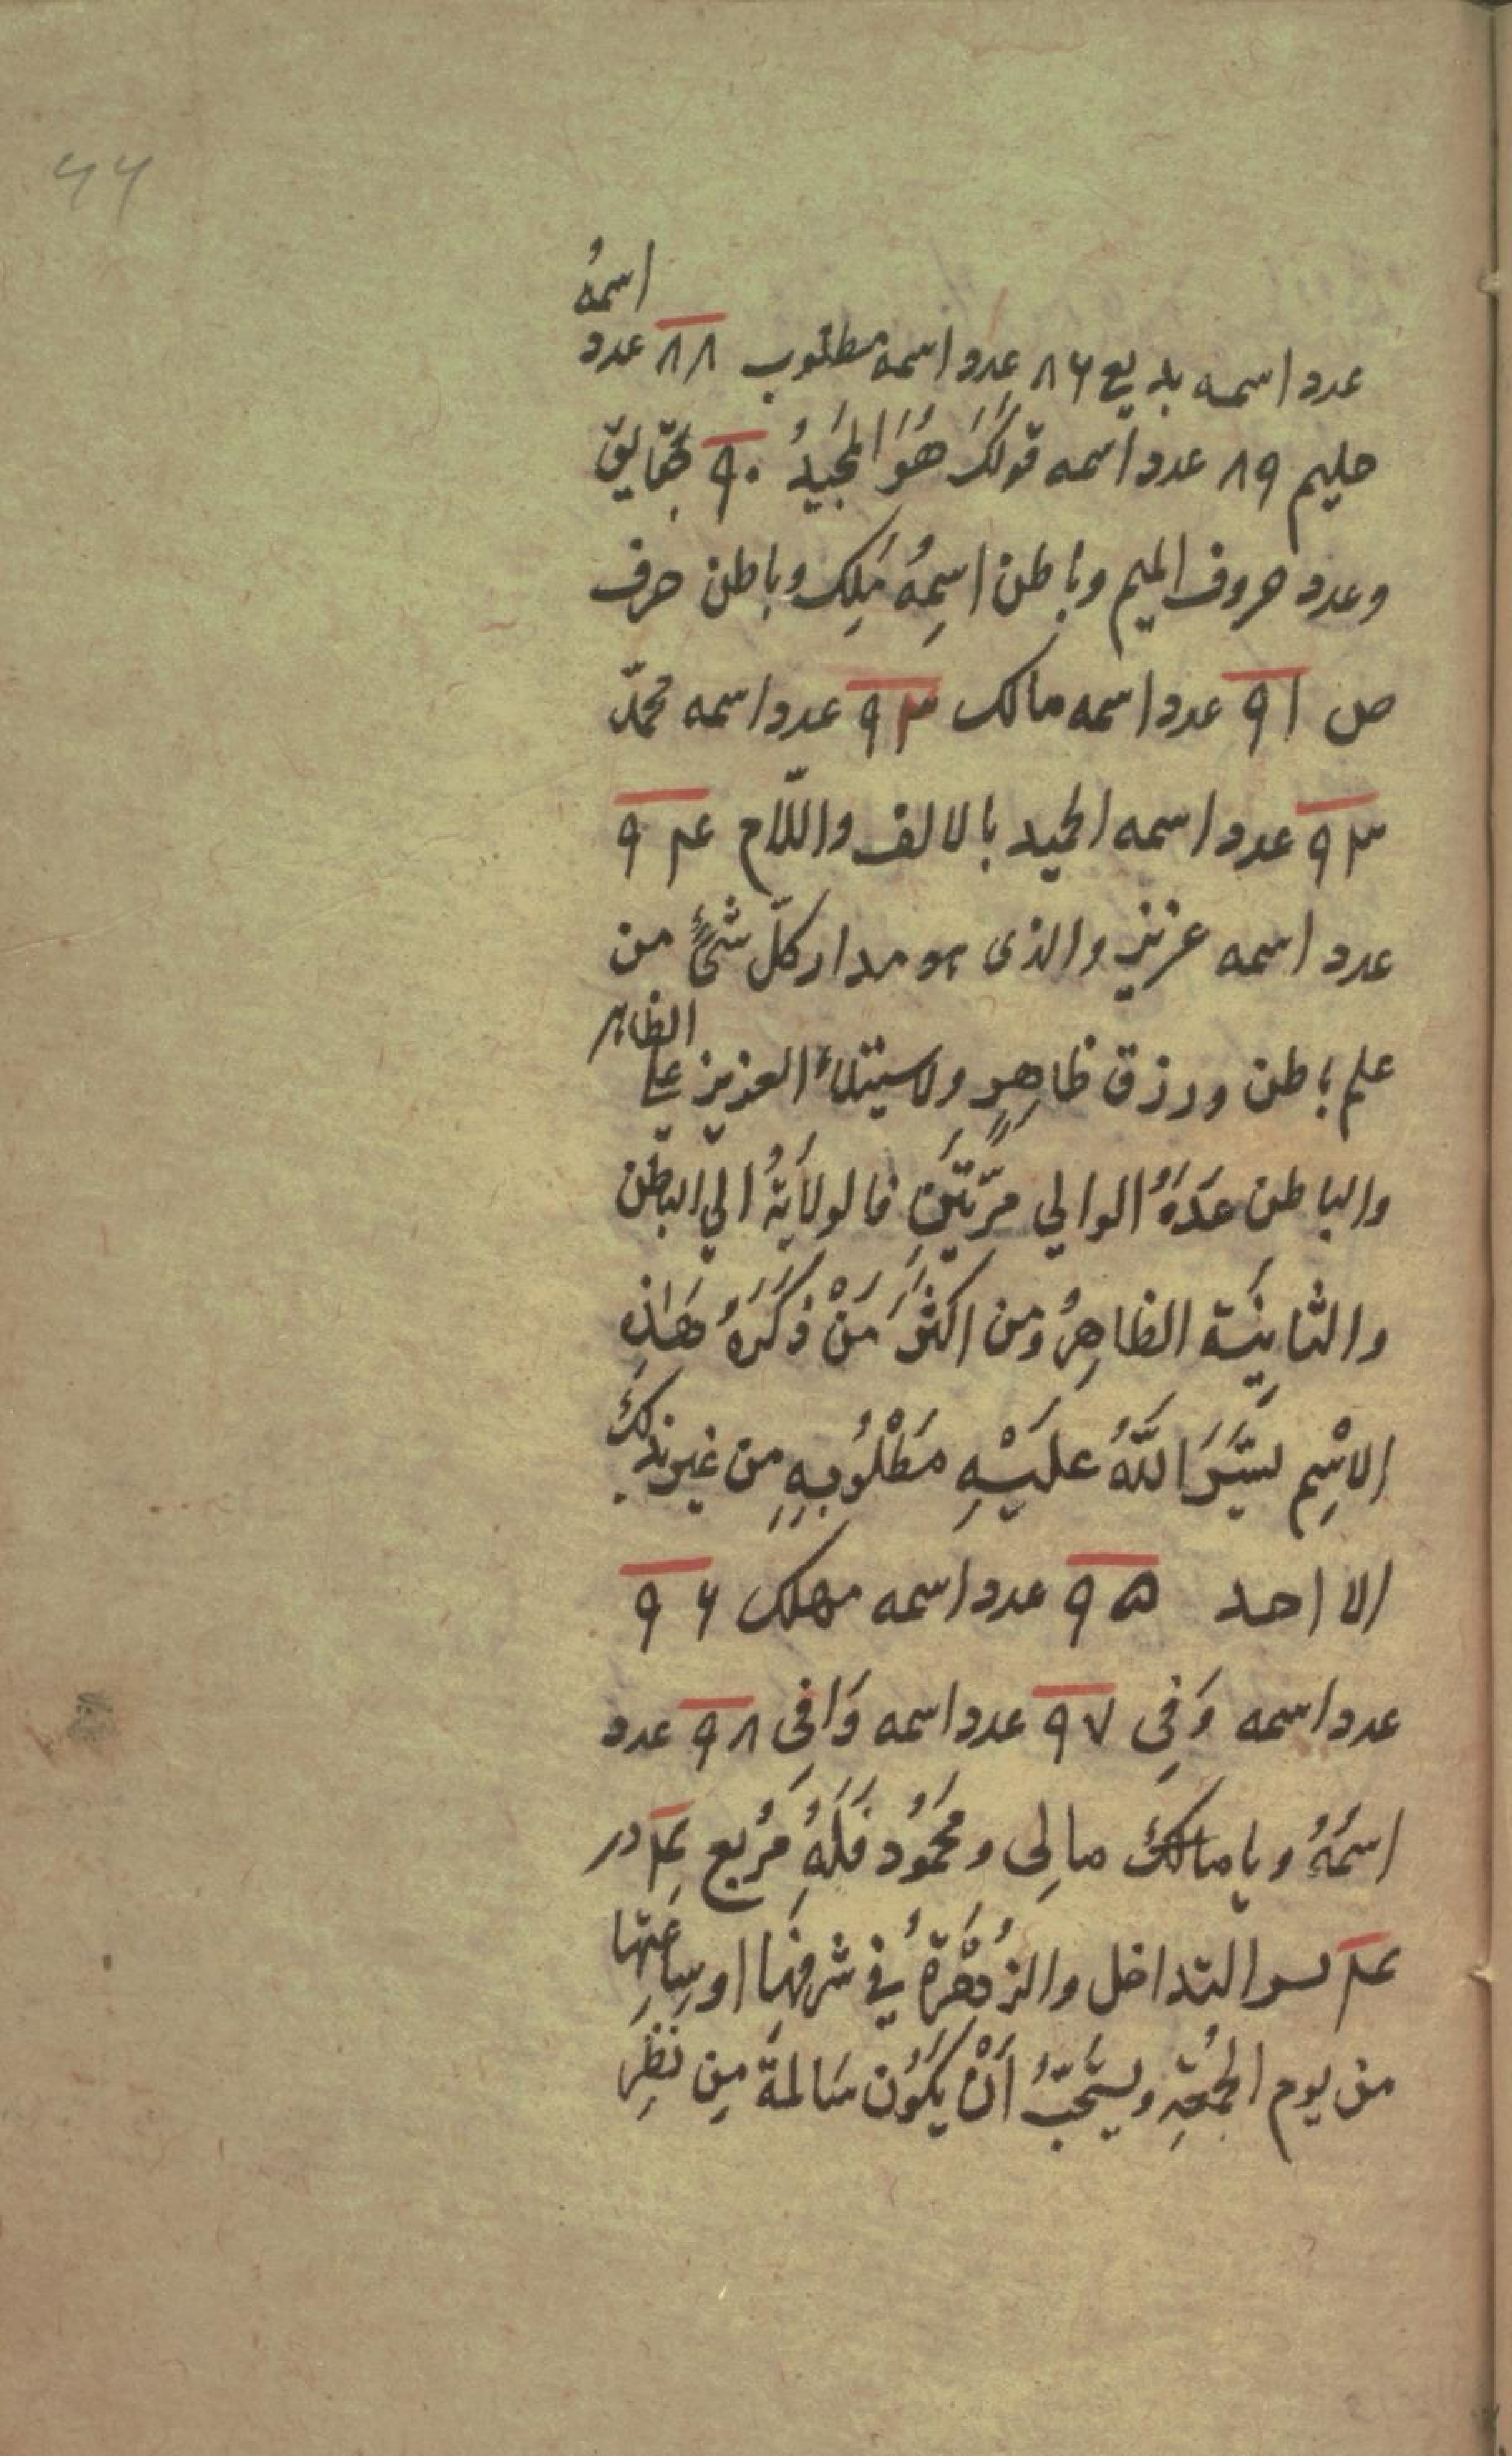 ۴۴
اسمهُ
عدد اسمه بديع ۸۶ عدد اسمه مطلوب ۸۸ عدد
حليم ۸۹ عدد اسمه قولك هُوَ المجَيدُ ۹۰ بحقايق
وعدد حروف الميم وباطن اسمِهُ مَلِك وباطن حرف
ص ۹۱ عدد اسمه مالك ۹۲ عدد اسمه محمدّ
۹۳ عدد اسمه الحميد بالالف واللّام ۹۴
عدد اسمه عزيز والذى هو مدار كلّ شئٍ من
علم باطن ورزق ظاهِرٍ ولاستيلاء العزيز على الظاهر
والباطن عَدَهُ الوالي مرّتَينِ فالولَايَةُ الي الباطن
والثانِيَة الظاهِرُ ومن اكثَرَ مَنْ ذَكَرَهُ هَذِهِ
الاسْمِ يسَّرَ اللَّهُ عليْهِ مَطْلُوبِهِ من غير
الا احد ۹۵ عدد اسمه مهلك ۹۶
عدد اسمه وَفِى ۹۷ عدد اسمه وَافِى ۹۸ عدد
اسمَهُ ويا مالكُ مالِى ومحَمُود فَلَهُ مُربع ۴ در
۴ التداخل والزُهَرةُ فِي شرفِهَا او سِاعَتِها
من يوم الجمُعَةِ ويستَحَبُّ اَنْ يَكُوَن سَالمةً مِن نَظَرِ